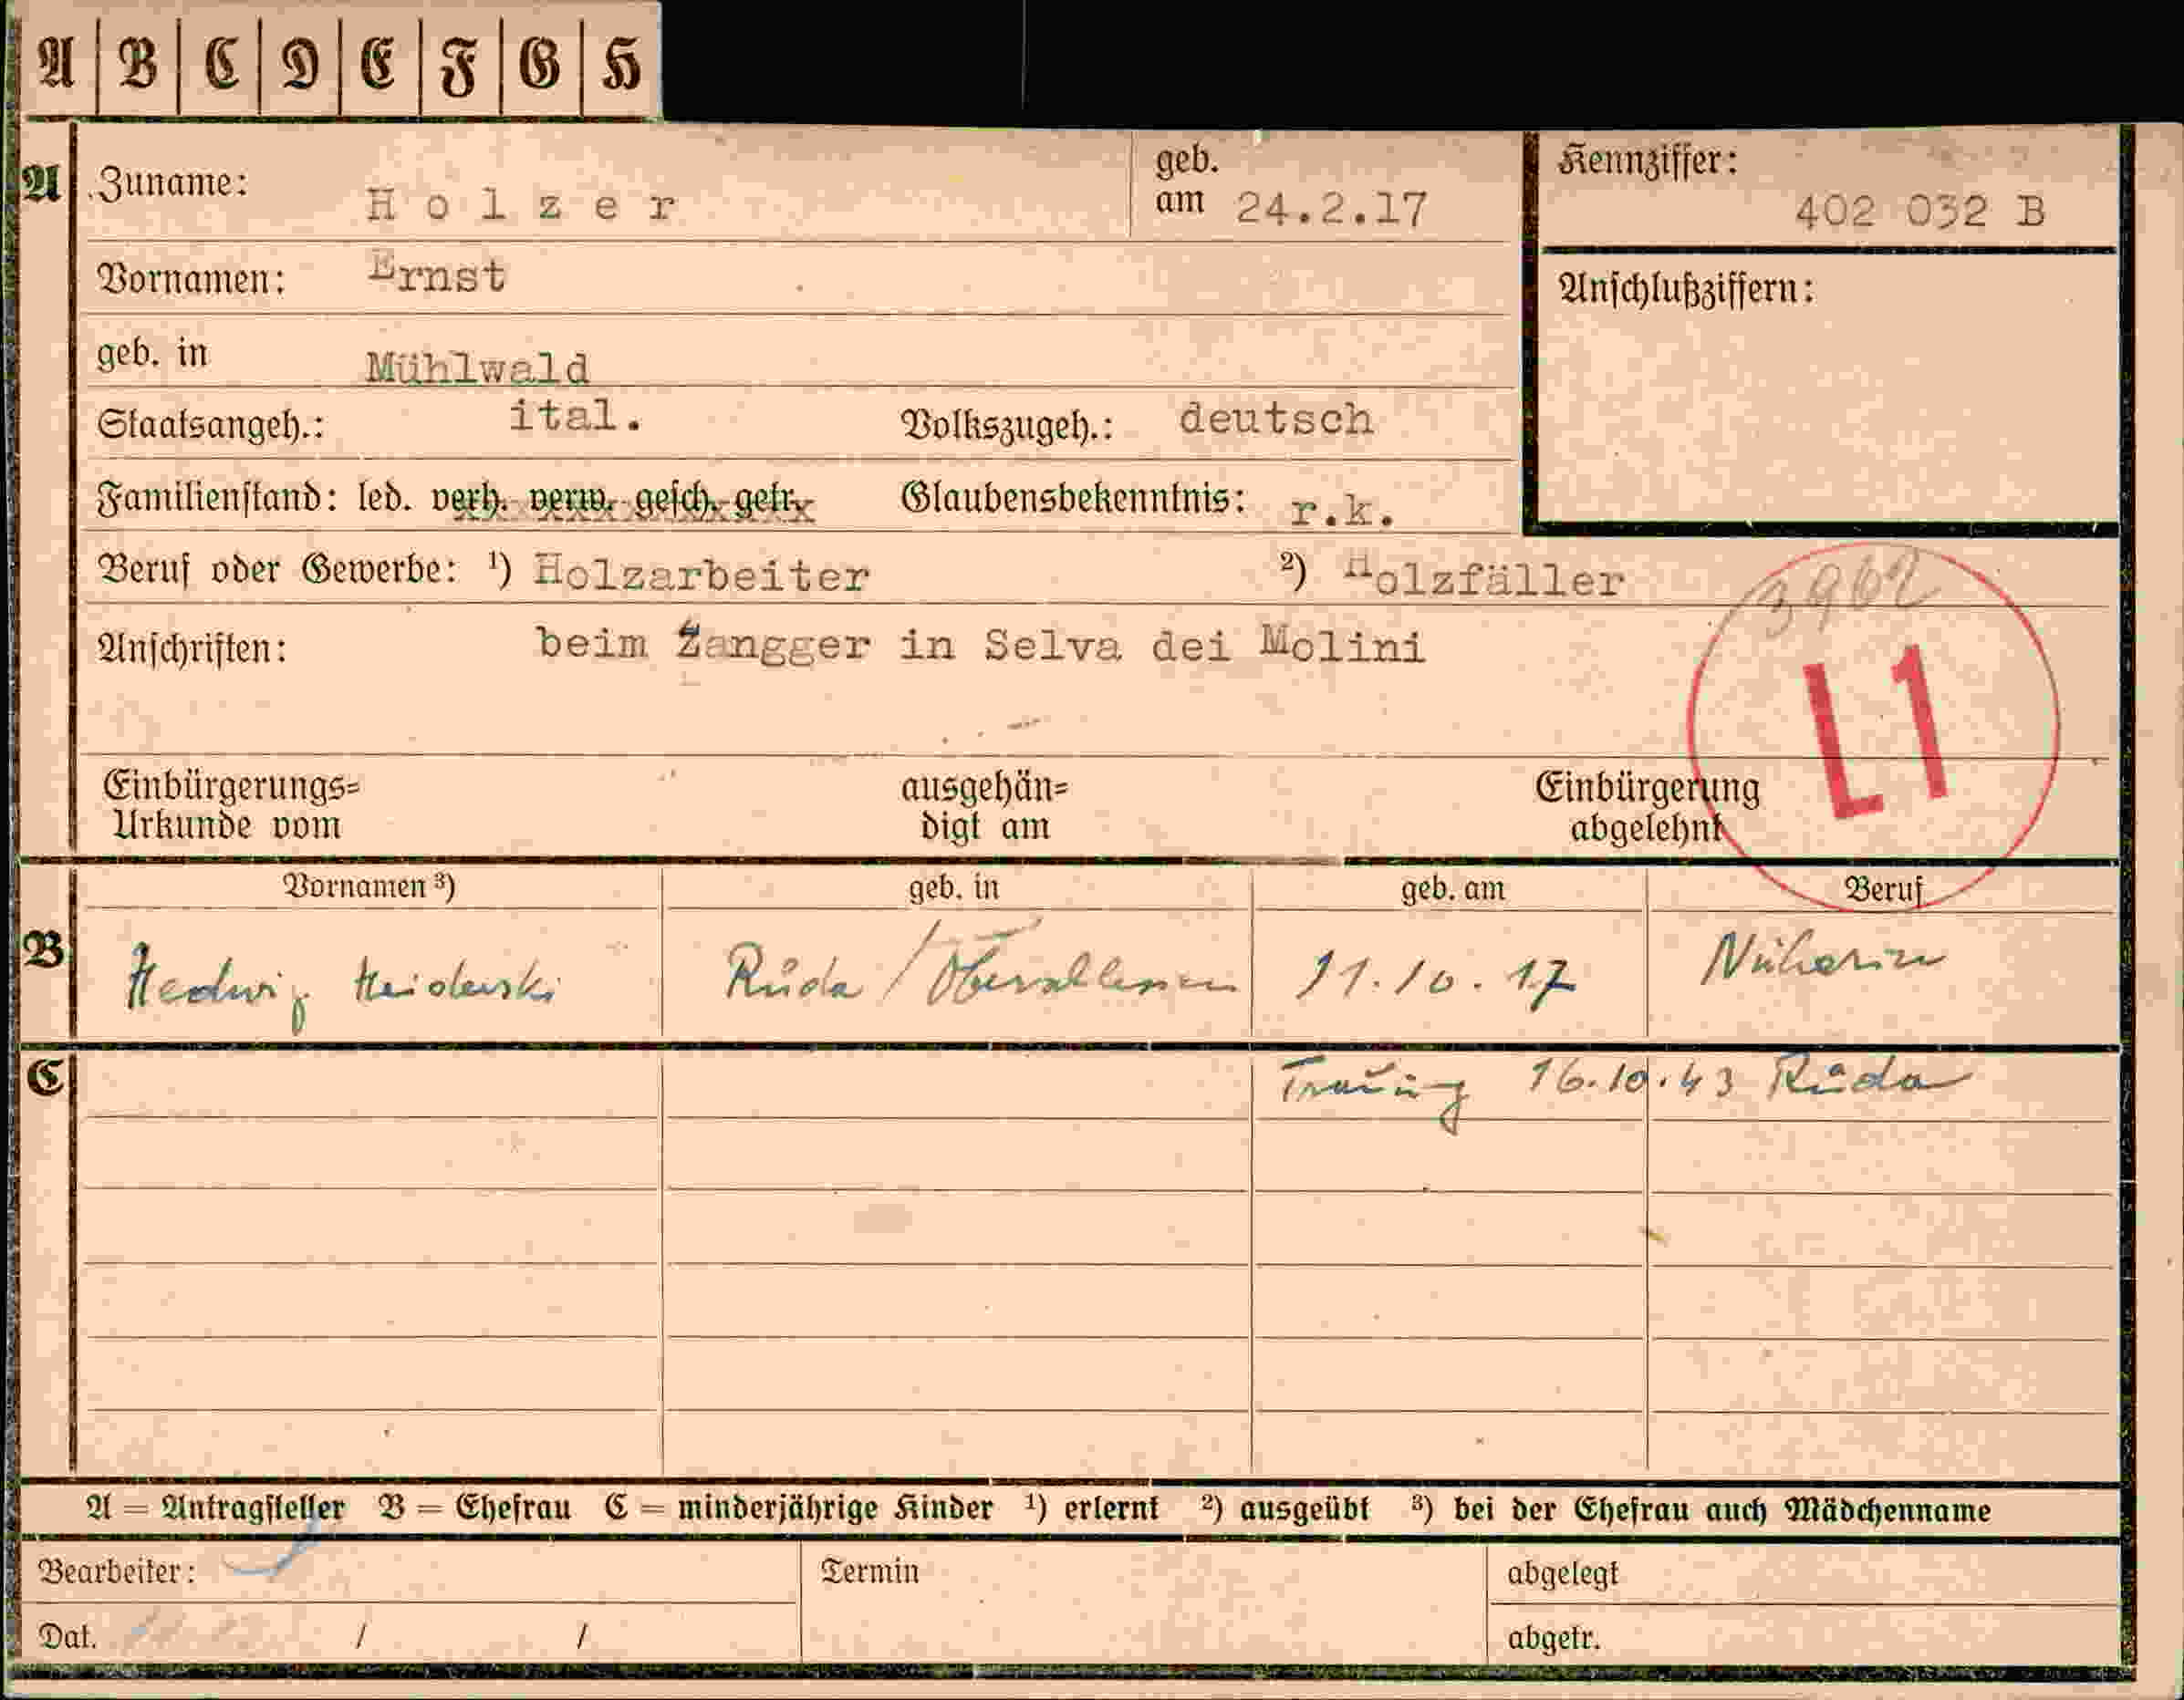 A B C D E F G H
A Zuname: Holzer geb. am 24.2.17 Kennziffer: 402 032 B
Vornamen: Ernst Anschlußziffern:
geb. in Mühlwald
Staatsangeh.: ital. Volkszugeh.: deutsch
Familienstand: led. verh. verw. gesch. getr. Glaubensbekenntnis: r.k.
Beruf oder Gewerbe: ¹) Holzarbeiter ²) Holzfäller 3962
Anschriften: beim Zangger in Selva dei Molini
L1
Einbürgerungs= ausgehän= Einbürgerung
Urkunde vom digt am abgelehnt
Vornamen ³) geb. in geb. am Beruf
B Hedwig Ruda / Oberschlesien 11.10.17 Näherin
C Trauung 16.10.43 Ruda
A = Antragsteller B = Ehefrau C = minderjährige Kinder ¹) erlernt ²) ausgeübt ³) bei der Ehefrau auch Mädchenname
Bearbeiter: Termin abgelegt
Dat. / / abgetr.